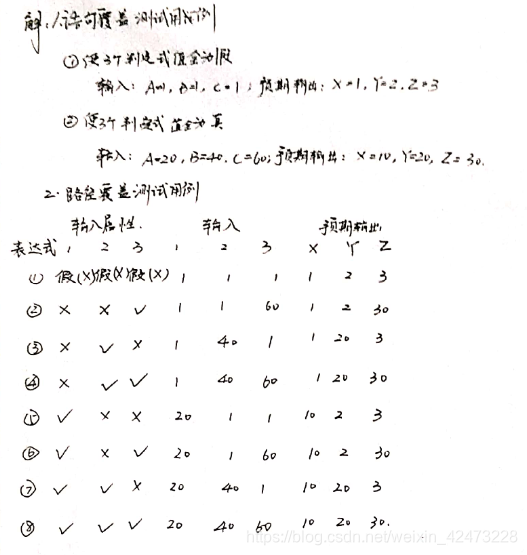 解:1.语句覆盖测试用例
① 使3个判定式值全为假
输入: A=1, B=1, C=1; 预期输出: X=1, Y=2, Z=3
② 使3个判定式值全为真
输入: A=20, B=40, C=60; 预期输出: X=10, Y=20, Z=30.
2. 路径覆盖测试用例
输入属性. 输入 预期输出
表达式 1 2 3 1 2 3 X Y Z
① 假(X)假(X)假(X) 1 1 1 1 2 3
② × × ✓ 1 1 60 1 2 30
③ × ✓ × 1 40 1 1 20 3
④ × ✓ ✓ 1 40 60 1 20 30
⑤ ✓ × × 20 1 1 10 2 3
⑥ ✓ × ✓ 20 1 60 10 2 30
⑦ ✓ ✓ × 20 40 1 10 20 3
⑧ ✓ ✓ ✓ 20 40 60 10 20 30.
https://blog.csdn.net/weixin_42473228